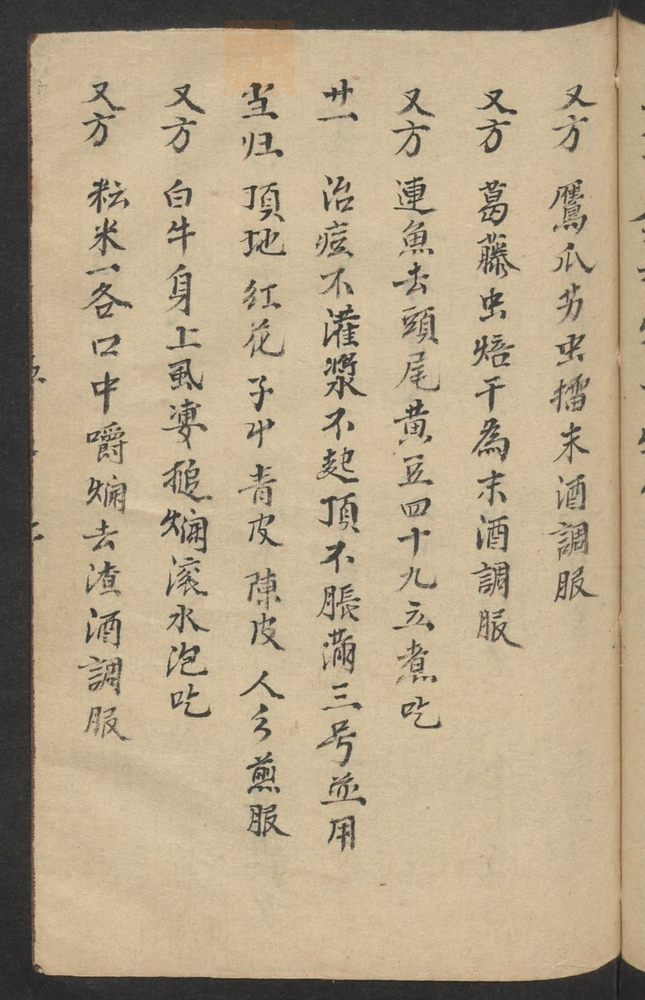 又方 鷹爪艿虫擂末酒調服
又方 葛藤虫焙干為末酒調服
又方 連魚去頭尾黄豆四十九立煮吃
廿一 治痘不灌漿不起頂不脹滿三号並用
当归 頂地 红花 子中 青皮 陳皮 人乡 煎服
又方 白牛身上虱婆搥爛滚水泡吃
又方 粘米一各口中嚼爛去渣酒調服